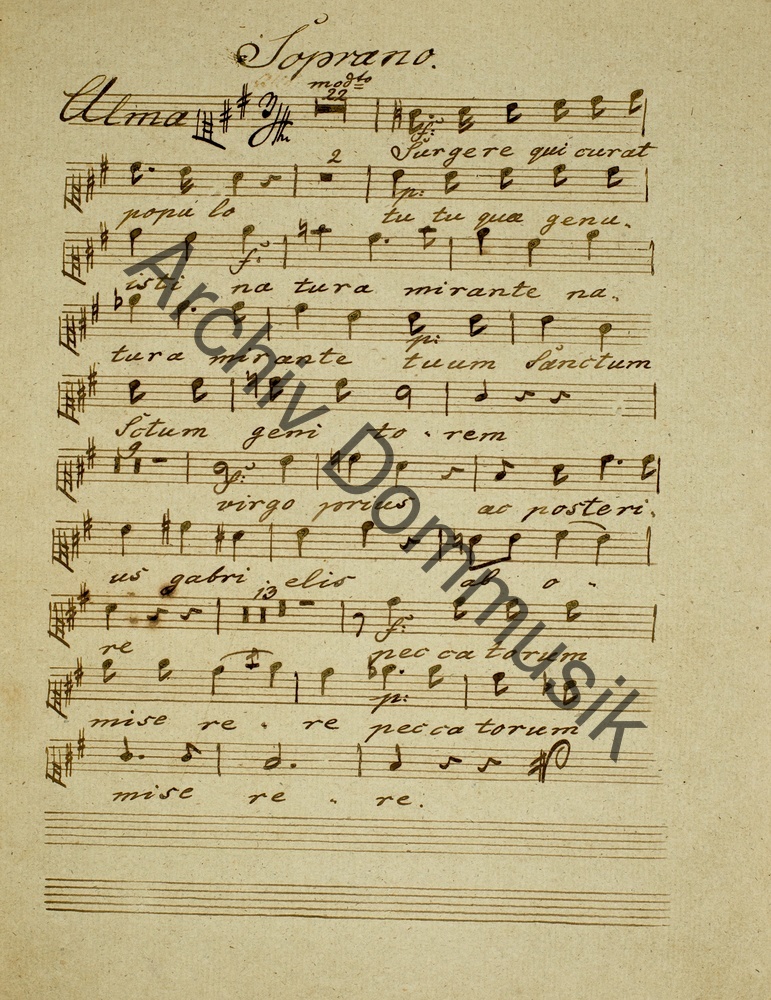 Soprano.
modto
Alma
22
f:
Surgere qui curat
2
p:
popu lo tu tu quæ genu-
f:
isti na tura mirante na-
p:
tura mirante tuum Sanctum
Sctum geni to - rem
9
f:
virgo prius ac posteri-
us gabri elis ab o -
13
f:
re peccatorum
p:
mise re - re peccatorum
mise re - re.
Archiv Dommusik